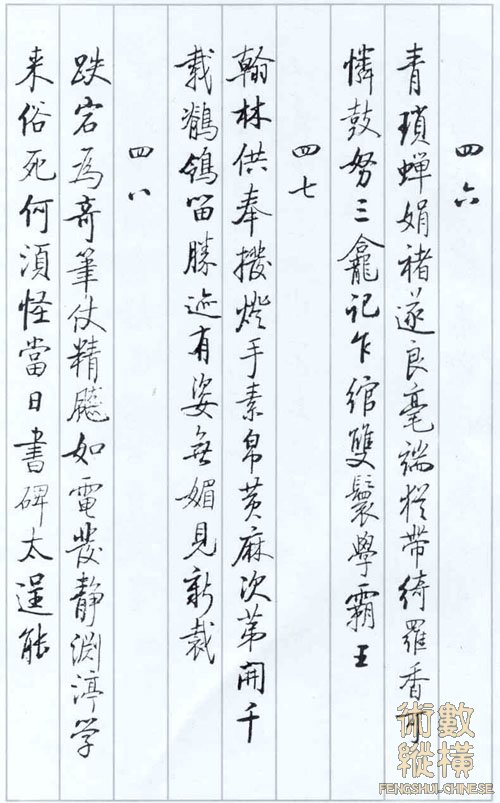 四六
青琐蝉娟褚遂良毫端猶带绮羅香可
憐鼓努三龕记乍绾雙鬟學霸王
四七
翰林供奉撥燈手素帛黄麻次苐開千
载鶺鴒留勝迹有姿無媚見新裁
四八
跌宕為奇筆仗精飈如電發静淵渟学
来俗死何須怪當日書碑太逞能
術數縱橫
FENGSHUI-CHINESE